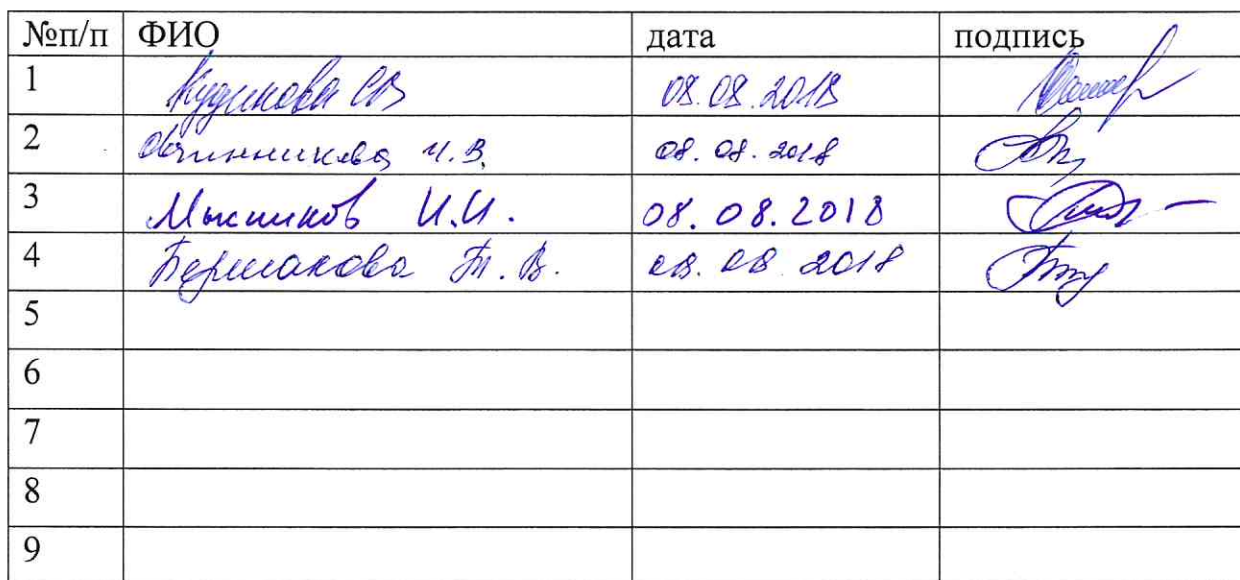 №п/п ФИО дата подпись
1 Кудинова СВ 08.08.2018
2 Овчинникова И.В. 08.08.2018
3 И.И. 08.08.2018
4 Т.В. 08.08.2018
5
6
7
8
9